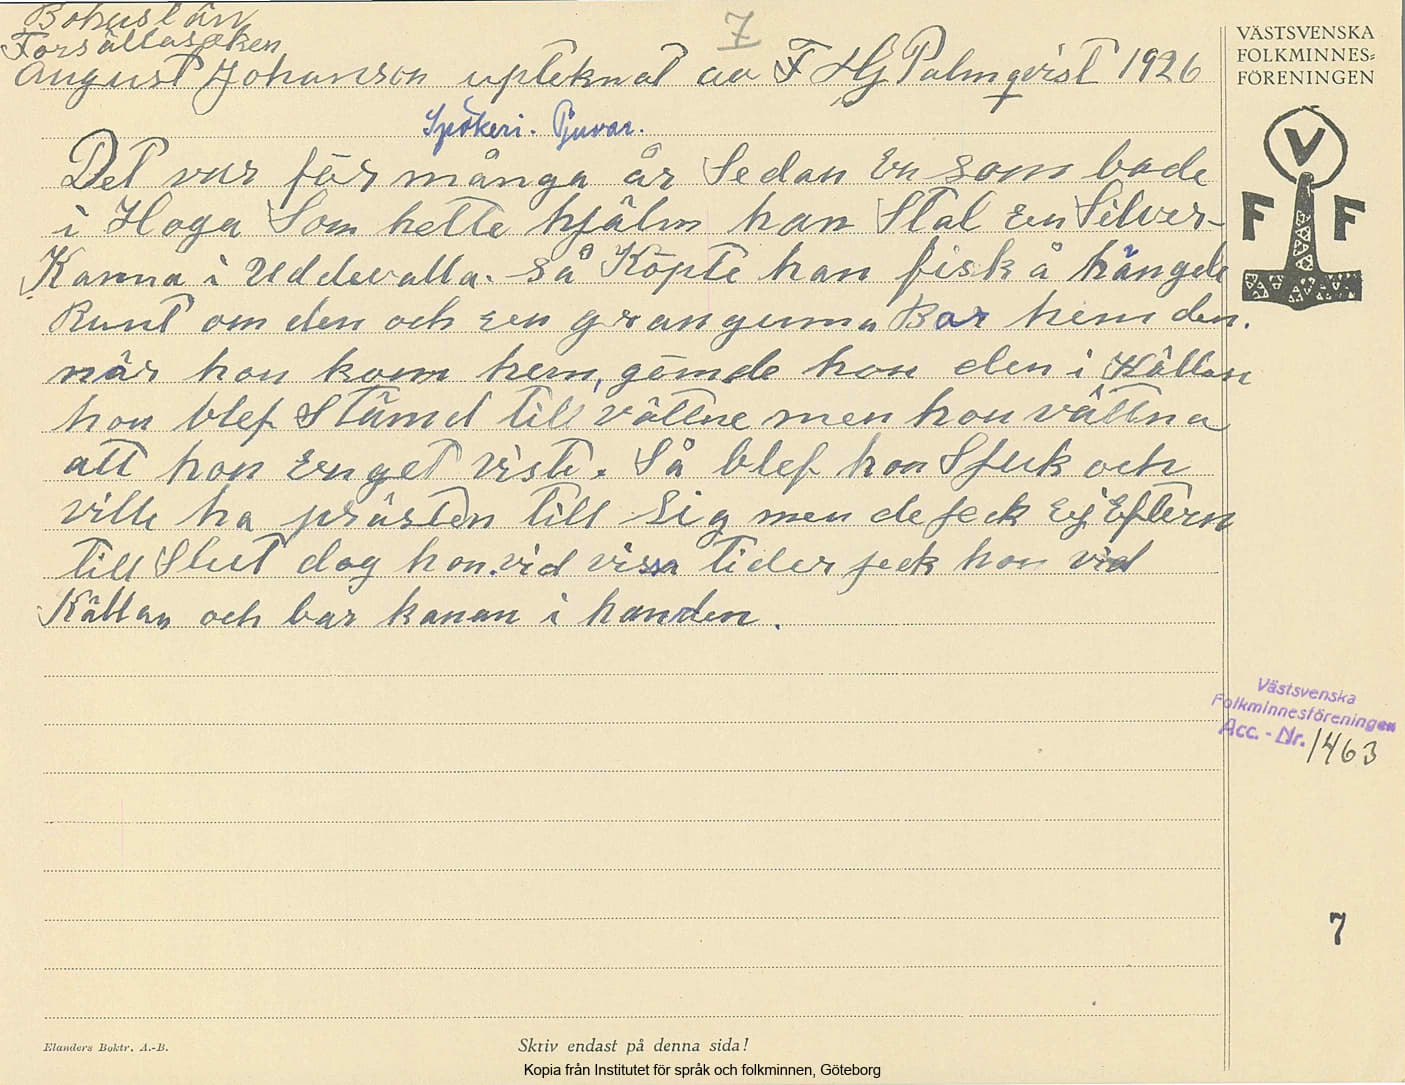 Bohuslän
7
Forsällasoken
August Johanson upteknat av F HG Palmqvist 1926
VÄSTSVENSKA
FOLKMINNES=
FÖRENINGEN
Spökeri. Tjuvar.
V
F F
Det var för många år Sedan En som bode
i Hoga Som hette hjälm han Stal een Silver-
Kanna i Uddevalla. så Köpte han fisk å hängde
Runt om den och een granguenna Bar hem den.
når hon kom hem, gömde hon den i Källan
hon blef Stämd till vättne men hon vättna
att hon Enget viste. Så blef hon Sjuk och
ville ha prästen till Sig men de feck Ej Eftern
till Slut dog hon. vid vissa tider feck hon vid
Källan och bar kanan i handen.
Västsvenska
Folkminnesföreningen
Acc. - Nr. 1463
7
Elanders Boktr. A.-B.
Skriv endast på denna sida!
Kopia från Institutet för språk och folkminnen, Göteborg